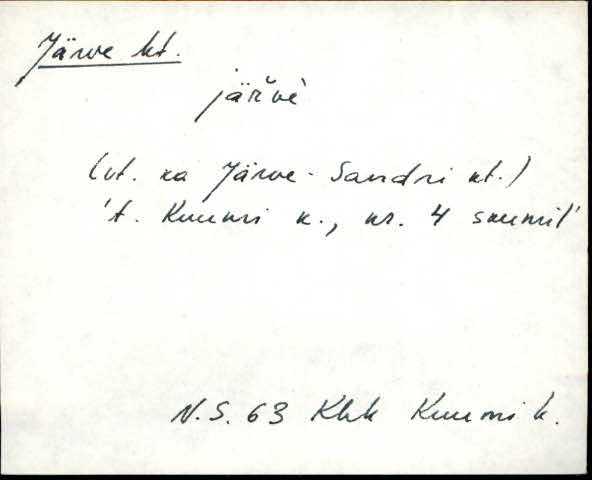 Järve kt.
järve
(vt. ka Järve-Sandri kt.)
't. Kuumi k., nr. 4 saunil'
N.S. 63 Khk Kuumi k.